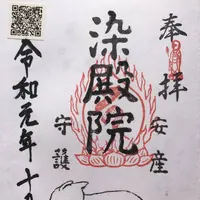 奉拝
安産
染殿院
守護
令和元年十